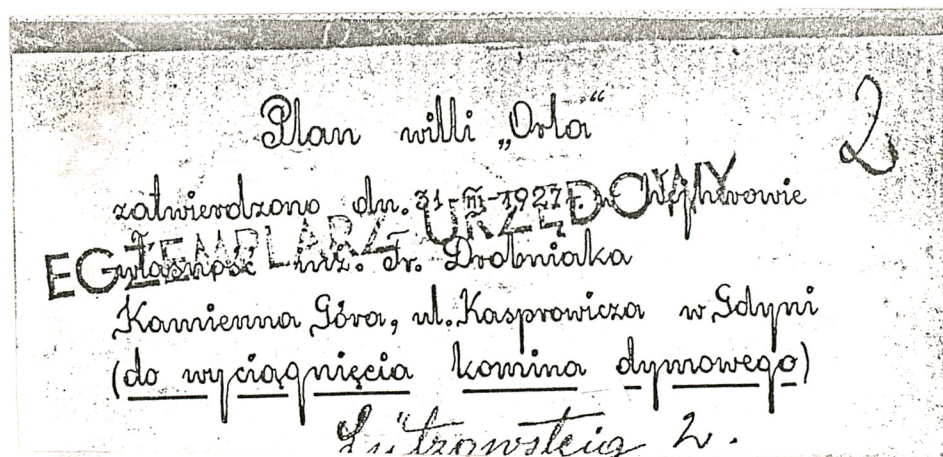 Plan willi „Orla“
2
zatwierdzono dn. 31-III-1927 r. w Wejherowie
EGZEMPLARZ URZĘDOWY
własność inż. Fr. Drobniaka
Kamienna Góra, ul. Kasprowicza w Gdyni
(do wyciągnięcia komina dymowego)
Lützowsteig 2.